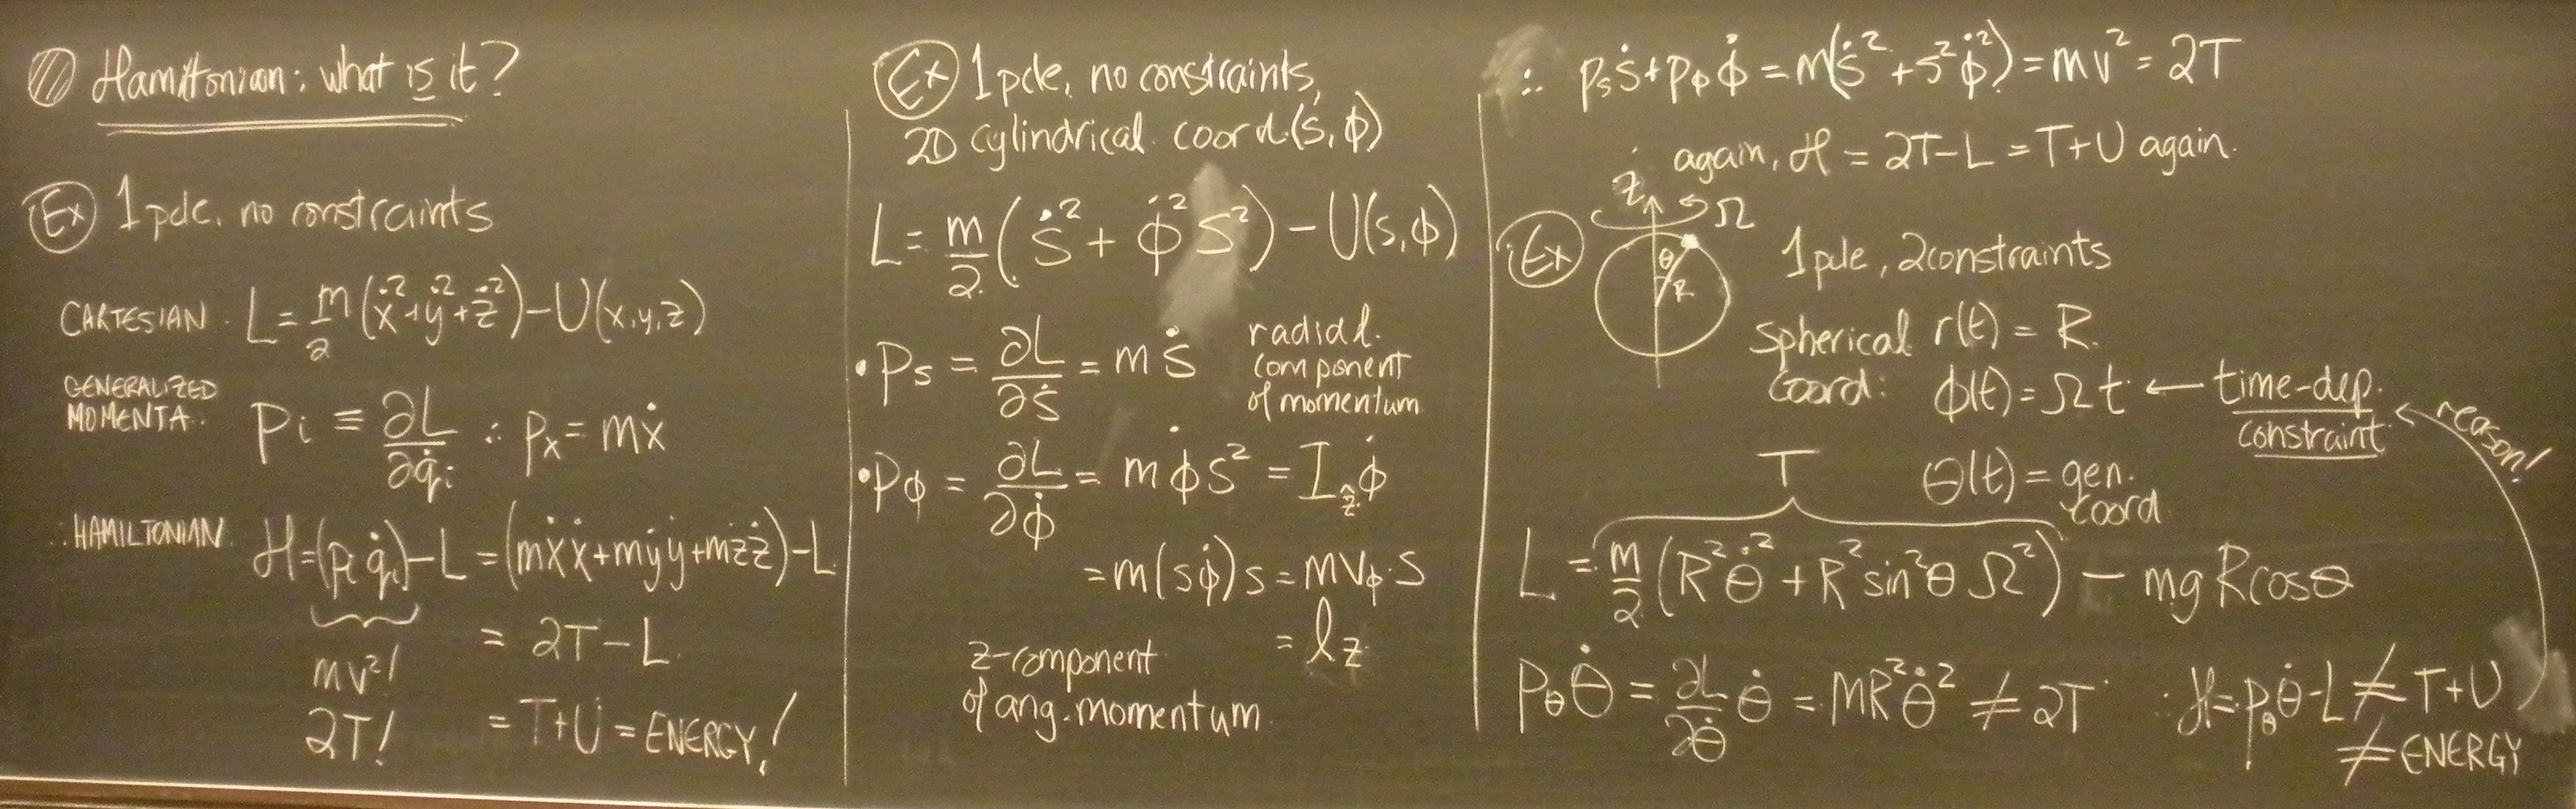 Hamiltonian: what is it?
Ex 1 pcle. no constraints
CARTESIAN. L = m/2 (ẋ² + ẏ² + ż²) - U(x,y,z)
GENERALIZED
MOMENTA.. pᵢ ≡ ∂L/∂q̇ᵢ ∴ pₓ = mẋ
∴ HAMILTONIAN. H = (pᵢ q̇ᵢ) - L = (mẋẋ + mẏẏ + mżż) - L
mv²!
2T!
= 2T - L
= T + U = ENERGY!
Ex 1 pcle, no constraints,
2D cylindrical coord. (s, ϕ)
L = m/2 (ṡ² + ϕ̇² s²) - U(s, ϕ)
• p_s = ∂L/∂ṡ = m ṡ
radial.
component
of momentum
• p_ϕ = ∂L/∂ϕ̇ = m ϕ̇ s² = I_ẑ ϕ̇
= m(sϕ̇)s = mv_ϕ · s
= l_z
z-component
of ang. momentum
∴ p_s ṡ + p_ϕ ϕ̇ = m(ṡ² + s² ϕ̇²) = mv² = 2T
again, H = 2T - L = T + U again.
Ex
z Ω
θ
R
1 pcle, 2 constraints
spherical r(t) = R.
coord: ϕ(t) = Ωt ← time-dep.
constraint
← reason!
θ(t) = gen.
coord
T
L = m/2 (R² θ̇² + R² sin²θ Ω²) - mg R cosθ
p_θ θ̇ = ∂L/∂θ̇ θ̇ = mR² θ̇² ≠ 2T ∴ H = p_θ θ̇ - L ≠ T + U
≠ ENERGY